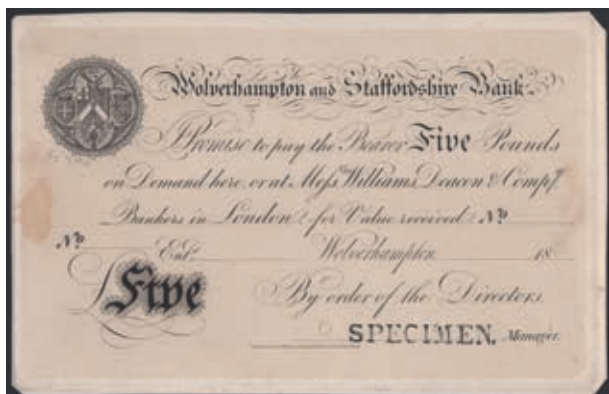 Wolverhampton and Staffordshire Bank
I Promise to pay the Bearer Five Pounds
on Demand here, or at Messrs Williams, Deacon & Compy.
Bankers in London, for Value received No
No Entd. Wolverhampton 18
£ Five By order of the Directors.
SPECIMEN. Manager.